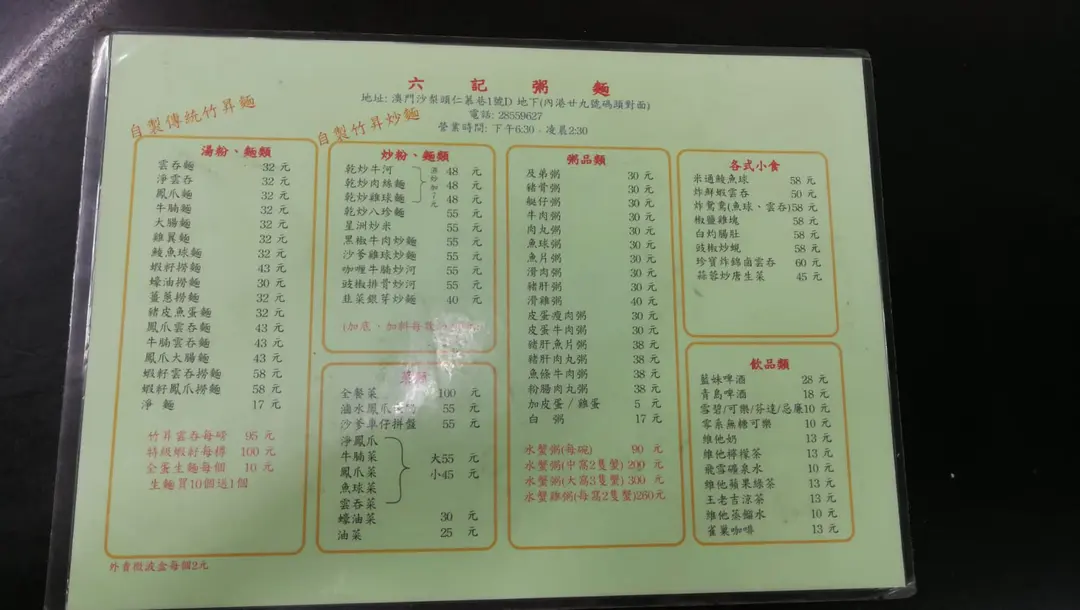 六記粥麵
地址: 澳門沙梨頭仁慕巷1號D 地下(內港廿九號碼頭對面)
電話: 28559627
營業時間: 下午6:30 - 凌晨2:30
自製傳統竹昇麵
湯粉、麵類
雲吞麵 32 元
淨雲吞 32 元
鳳爪麵 32 元
牛腩麵 32 元
大腸麵 32 元
雞翼麵 32 元
鯪魚球麵 32 元
蝦籽撈麵 43 元
蠔油撈麵 30 元
薑蔥撈麵 32 元
豬皮魚蛋麵 32 元
鳳爪雲吞麵 43 元
牛腩雲吞麵 43 元
鳳爪大腸麵 43 元
蝦籽雲吞撈麵 58 元
蝦籽鳳爪撈麵 58 元
淨 麵 17 元
竹昇雲吞每磅 95 元
特級蝦籽每樽 100 元
全蛋生麵每個 10 元
生麵買10個送1個
外賣微波盒每個2元
自製竹昇炒麵
炒粉、麵類
乾炒牛河 48 元
乾炒肉絲麵 48 元
乾炒雞球麵 48 元
濕炒加7元
乾炒八珍麵 55 元
星洲炒米 55 元
黑椒牛肉炒麵 55 元
沙爹雞球炒麵 55 元
咖喱牛腩炒河 55 元
豉椒排骨炒河 55 元
韭菜銀芽炒麵 40 元
(加底、加料每
菜類
全餐菜 100 元
滷水鳳爪 55 元
沙爹車仔拼盤 55 元
淨鳳爪
牛腩菜
鳳爪菜
魚球菜
雲吞菜
大55 元
小45 元
蠔油菜 30 元
油菜 25 元
粥品類
及弟粥 30 元
豬骨粥 30 元
艇仔粥 30 元
牛肉粥 30 元
肉丸粥 30 元
魚球粥 30 元
魚片粥 30 元
滑肉粥 30 元
豬肝粥 30 元
滑雞粥 40 元
皮蛋瘦肉粥 30 元
皮蛋牛肉粥 30 元
豬肝魚片粥 38 元
豬肝肉丸粥 38 元
魚條牛肉粥 38 元
粉腸肉丸粥 38 元
加皮蛋/雞蛋 5 元
白 粥 17 元
水蟹粥(每碗) 90 元
水蟹粥(中窩2隻蟹) 200 元
水蟹粥(大窩3隻蟹) 300 元
水蟹雞粥(每窩2隻蟹)260元
各式小食
米通鯪魚球 58 元
炸鮮蝦雲吞 50 元
炸鴛鴦(魚球、雲吞)58 元
椒鹽雞塊 58 元
白灼腸肚 58 元
豉椒炒蜆 58 元
珍寶炸錦鹵雲吞 60 元
蒜蓉炒唐生菜 45 元
飲品類
藍妹啤酒 28 元
青島啤酒 18 元
雪碧/可樂/芬達/忌廉10 元
零系無糖可樂 10 元
維他奶 13 元
維他檸檬茶 13 元
飛雪礦泉水 10 元
維他蘋果綠茶 13 元
王老吉涼茶 13 元
維他蒸餾水 10 元
雀巢咖啡 13 元